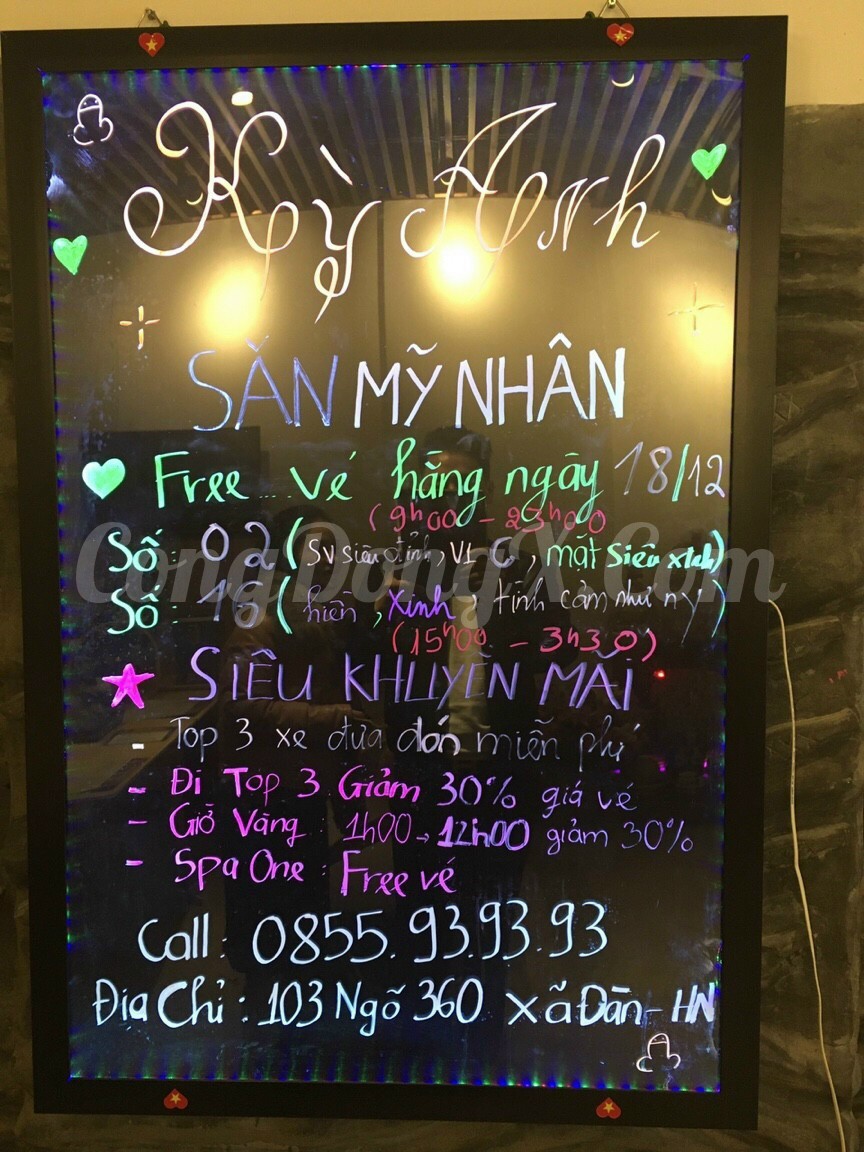 Kỳ Anh
SĂN MỸ NHÂN
Free ... vé hằng ngày 18/12
(9h00 - 23h00
Số: 02 (SV siêu đỉnh, V1 C, mặt siêu xinh)
Số: 16 (hiền, xinh, tình cảm như ny)
(15h00 - 3h30)
SIÊU KHUYẾN MÃI
- Top 3 xe đưa đón miễn phí
- Đi Top 3 Giảm 30% giá vé
- Giờ Vàng: 1h00 → 12h00 giảm 30%
- Spa One: Free vé
Call: 0855.93.93.93
Địa Chỉ: 103 Ngõ 360 Xã Đàn - HN
CongDongX.Com